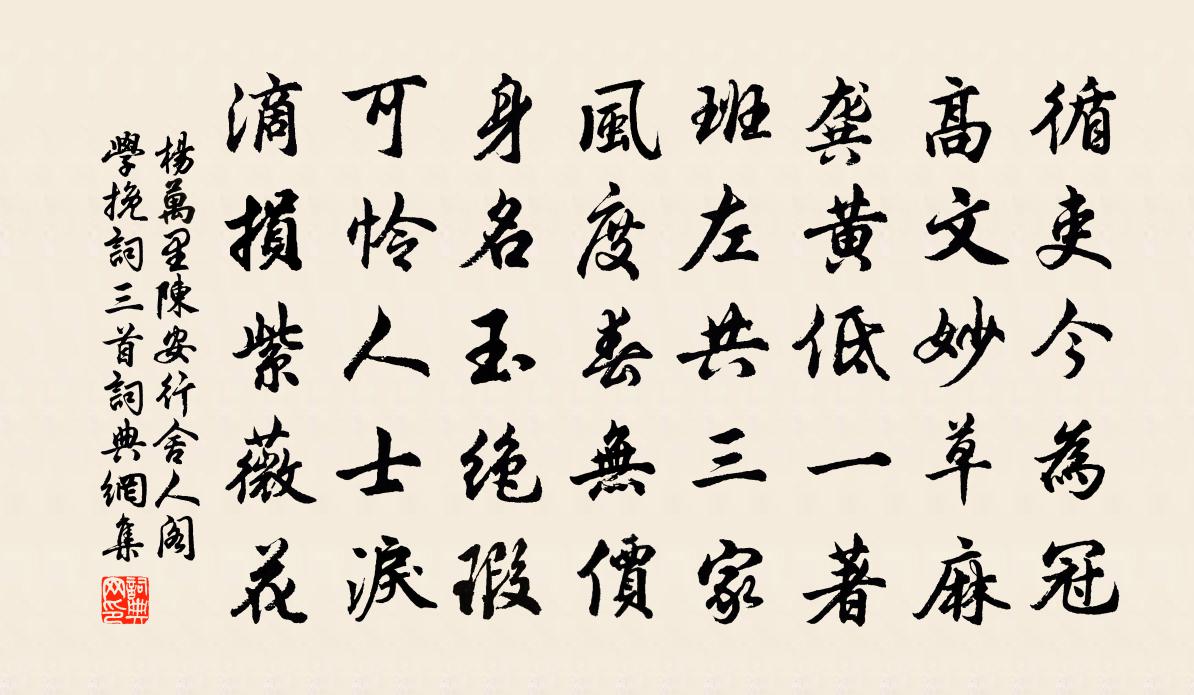 循吏今為冠
高文妙草麻
龔黄低一著
班左共三家
風度春無價
身名玉絶瑕
可怜人士淚
滴損紫薇花
楊萬里陳安行舍人閣
學挽詞三首詞典網集
詞典网印